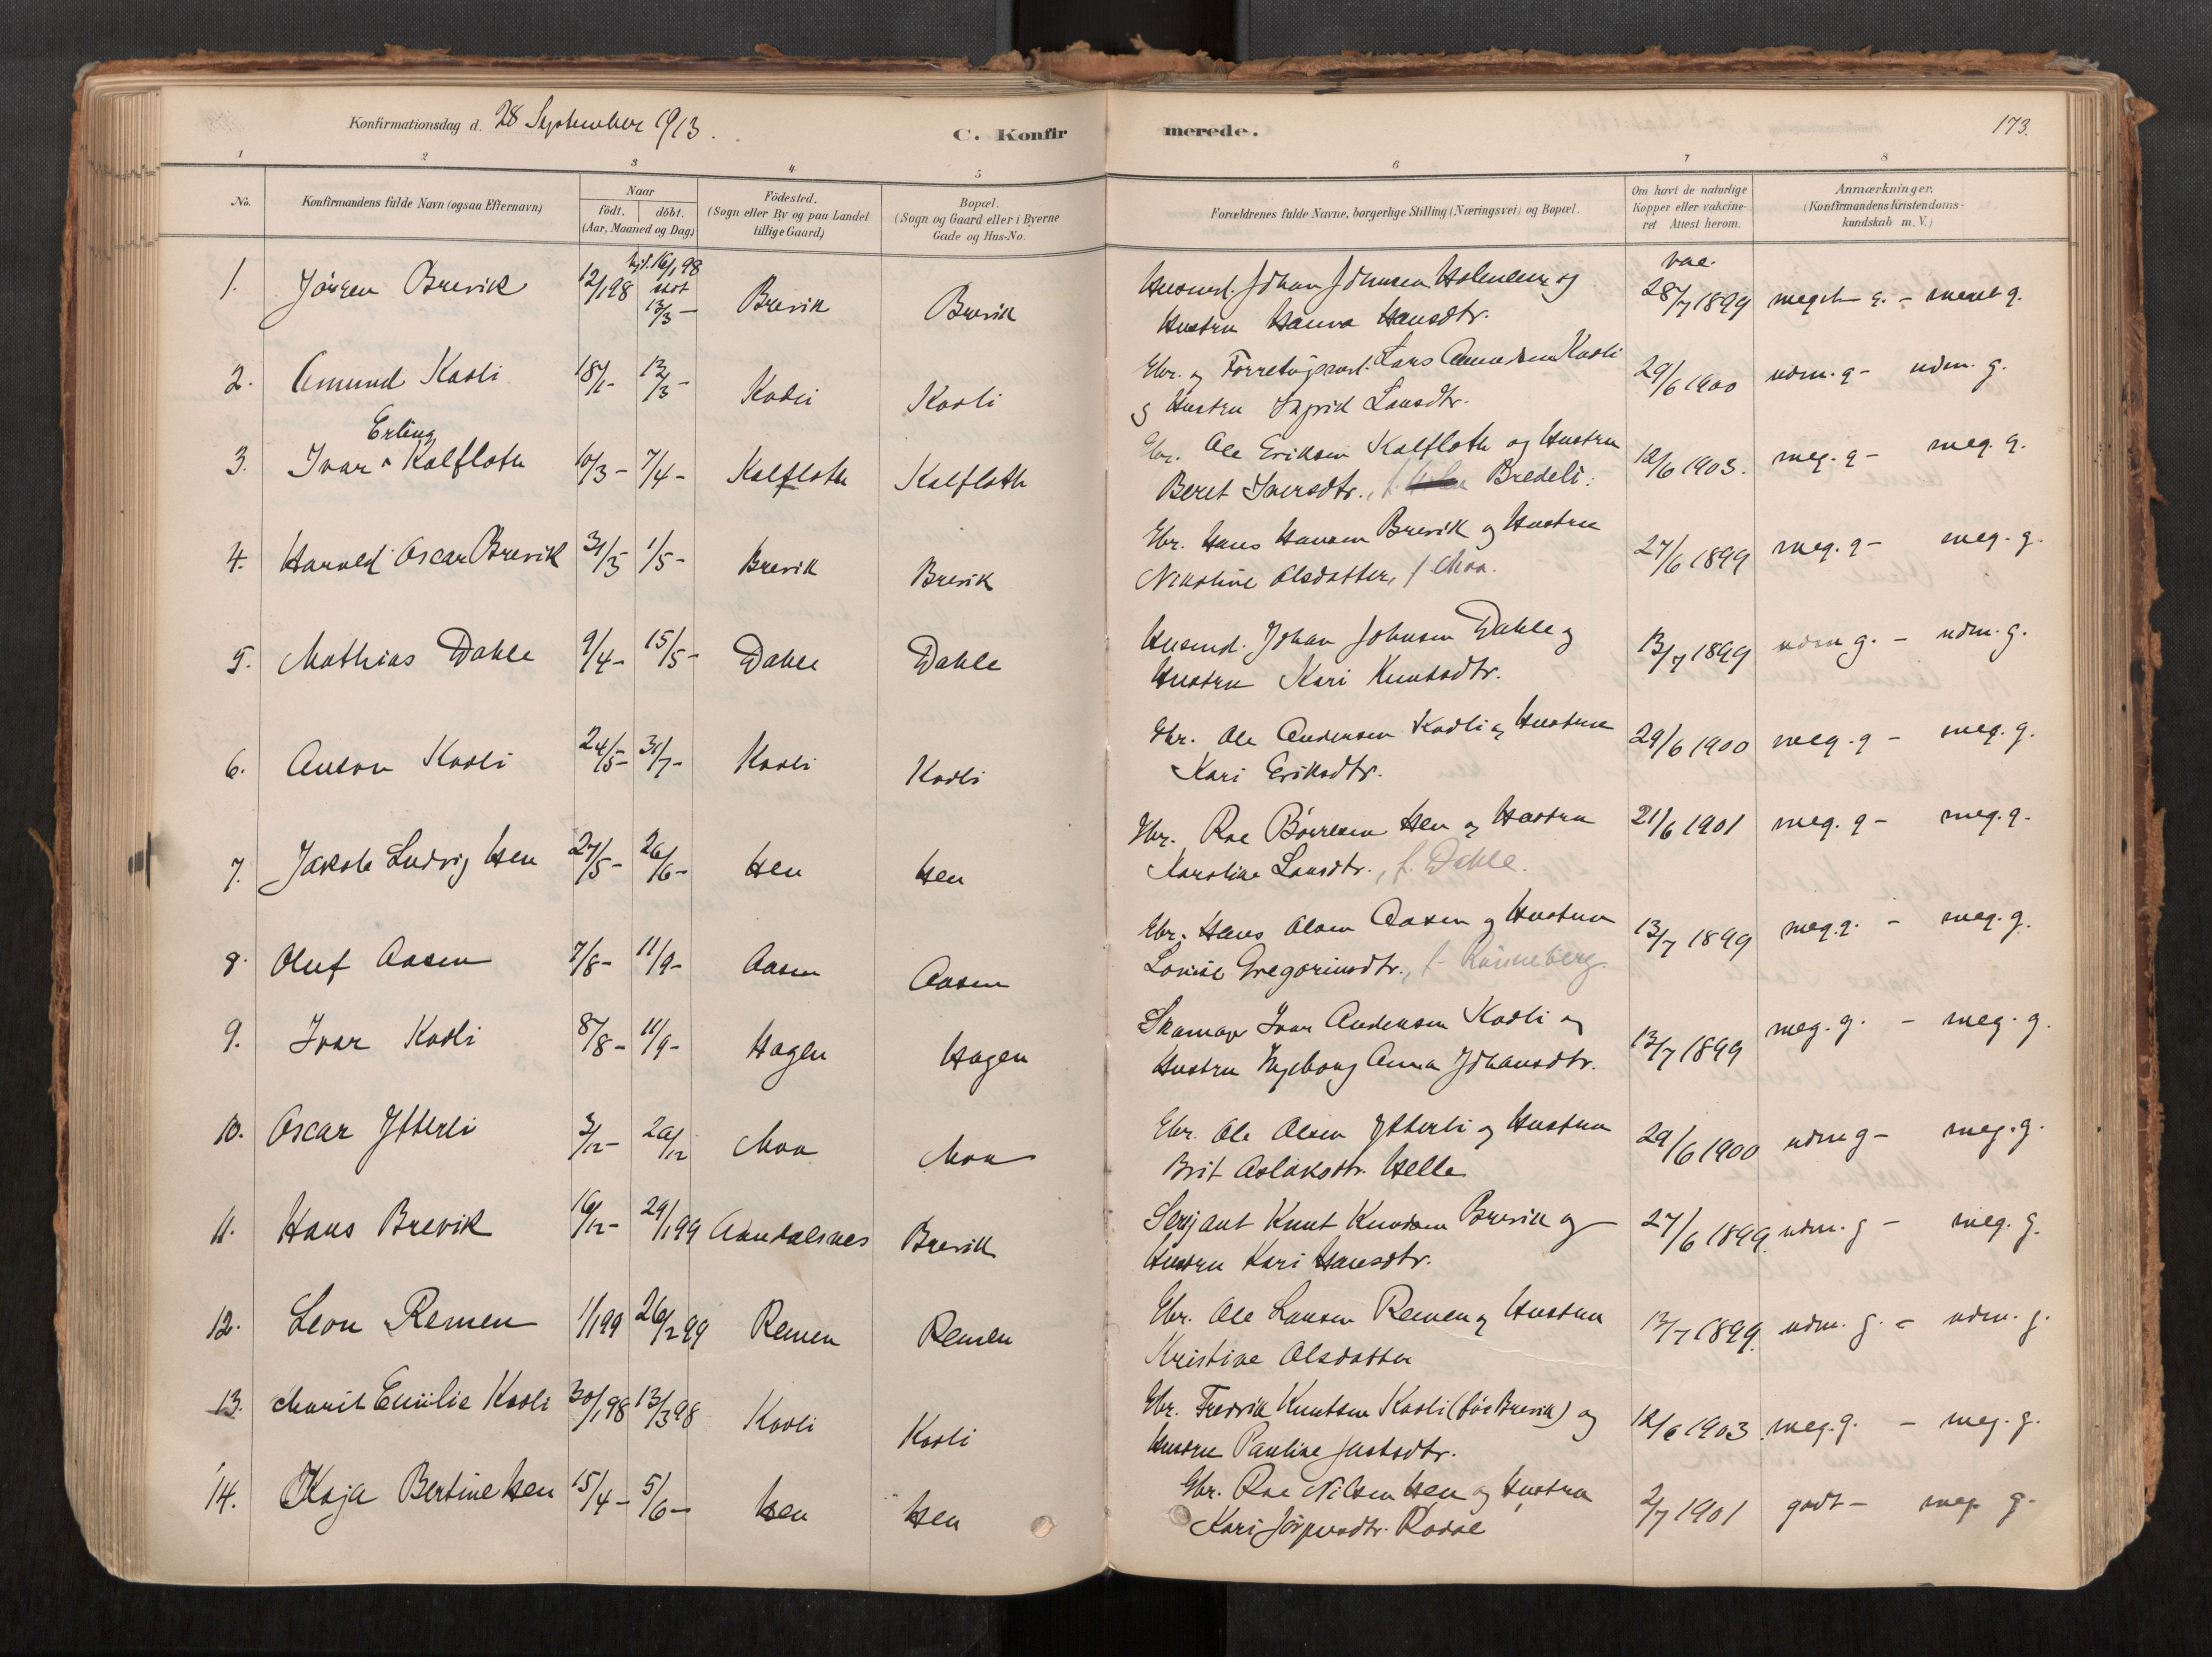 Konfirmationsdag d. 28 September 1913.
C. Konfirmerede.
173.
1 2 3 4 5 6 7 8
No.
Konfirmandens fulde Navn (ogsaa Efternavn)
Naar
födt. döbt.
(Aar, Maaned og Dag)
Födested.
(Sogn eller By og paa Landet
tillige Gaard)
Bopæl.
(Sogn og Gaard eller i Byerne
Gade og Hus-No.
Forældrenes fulde Navne, borgerlige Stilling (Næringsvei) og Bopæl.
Om havt de naturlige
Kopper eller vakcine-
ret Attest herom.
Anmærkninger.
(Konfirmandens Kristendoms-
kundskab m. V.)
1. Jörgen Brevik 12/1 98 hjd. 16/1 98 stadf. 13/3 - Brevik Brevik
Husmd. Johan Johnsen Holmem og
Hustru Hanna Hansdtr.
vac. 28/7 1899 meget g. - meget g.
2. Amund Kavli 18/1 - 13/3 - Kavli Kavli
Gbr. og Forretningsmd. Lars Amundsen Kavli
og Hustru Ingrid Larsdtr.
29/6 1900 udm. g - udm. g.
3. Ivar Erling Kalfloth 10/3 - 7/4 - Kalfloth Kalfloth
Gbr. Ole Eriksen Kalfloth og Hustru
Beret Iversdtr., f. Bredeli.
12/6 1903. meg. g - meg. g.
4. Harald Oscar Brevik 31/3 1/5 - Brevik Brevik
Gbr. Hans Hansen Brevik og Hustru
Nikoline Olsdatter, f Moa.
27/6 1899 meg. g - meg. g.
5. Mathias Dahle 9/4 - 15/5 - Dahle Dahle
Husmd. Johan Johnsen Dahle og
Hustru Kari Knutsdtr.
13/7 1899 udm g. - udm. g.
6. Anton Kavli 24/5 - 31/7 - Kavli Kavli
Gbr. Ole Andersen Kavli og Hustru
Kari Eriksdtr.
29/6 1900 meg. g - meg. g.
7. Jakob Ludvig Hen 27/5 - 26/6 - Hen Hen
Gbr. Roe Börresen Hen og Hustru
Karoline Larsdtr., f. Dahle.
21/6 1901 meg. g - meg. g.
8. Oluf Aasen 7/8 - 11/9 - Aasen Aasen
Gbr. Hans Olsen Aasen og Hustru
Lovise Gregoriusdtr., f. Rönneberg.
13/7 1899 meg. g. - meg. g.
9. Ivar Kavli 8/8 - 11/9 - Hagen Hagen
Skomager Ivar Andersen Kavli og
Hustru Ingeborg Anna Johansdtr.
13/7 1899 meg. g. - meg. g.
10. Oscar Ytterli 3/12 - 20/12 Moa Moa
Gbr. Ole Olsen Ytterli og Hustru
Brit Aslaksdtr. Helle
29/6 1900 udm g - meg. g.
11. Hans Brevik 16/12 - 29/1 99 Aandalsnes Brevik
Serjant Knut Knudsen Brevik og
Hustru Kari Hansdtr.
27/6 1899. udm. g - meg. g.
12. Leon Remen 1/1 99 26/2 99 Remen Remen
Gbr. Ole Larsen Remen og Hustru
Kristine Olsdatter
13/7 1899. udm. g. - udm. g.
13. Marit Emilie Kavli 30/1 98 13/3 98 Kavli Kavli
Gbr. Fredrik Knutsen Kavli (för Brevik) og
Hustru Pauline Justsdtr.
12/6 1903 meg. g. - meg. g.
14. Kaja Bertine Hen 15/4 - 5/6 - Hen Hen
Gbr. Roe Nilsen Hen og Hustru
Kari Jörgensdtr. Rödal
2/7 1901 godt - meg g.